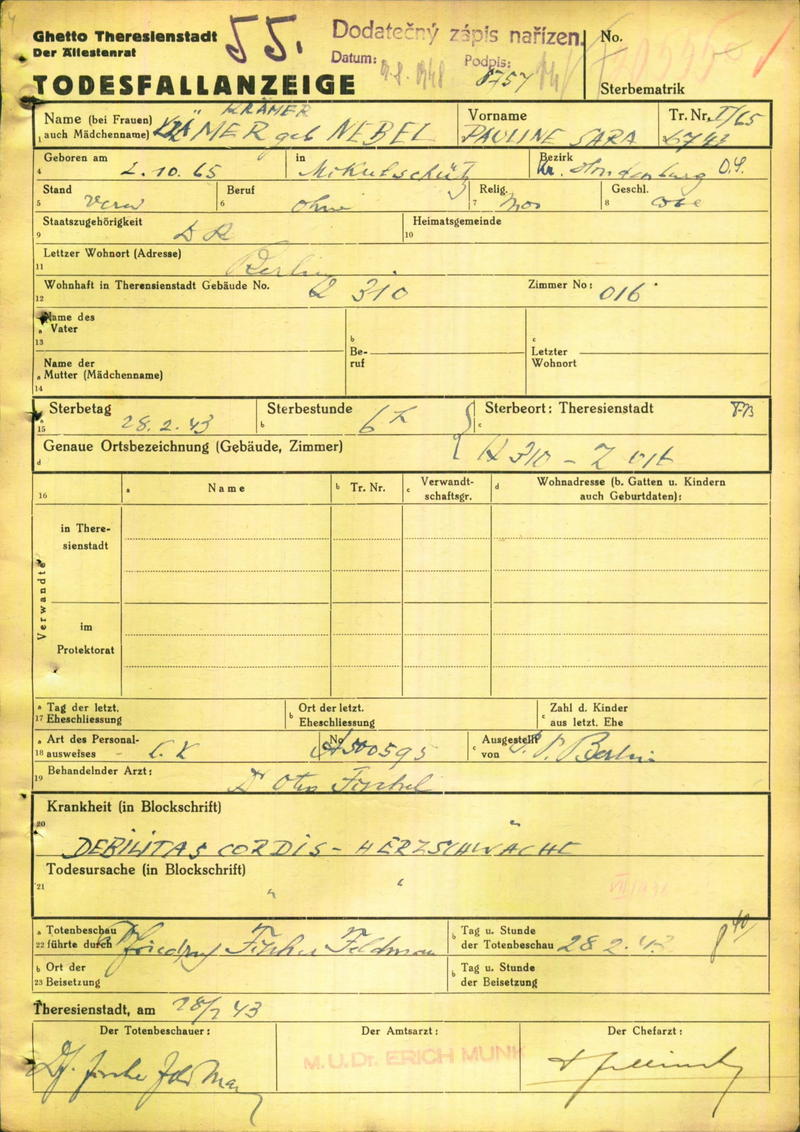 Ghetto Theresienstadt
Der Ältestenrat
55.
Dodatečný zápis nařízen.
Datum: Podpis:
8757
No.
TODESFALLANZEIGE
Sterbematrik
KRÄMER
Name (bei Frauen) MER geb NEBEL
1 auch Mädchenname)
Vorname PAULINE SARA
Tr. Nr. I/65
4 Geboren am 2.10.65 in Mikultschütz Bezirk Kr. Hindenburg O.S.
5 Stand verw 6 Beruf ohne 7 Relig. mos 8 Geschl.
9 Staatszugehörigkeit DR 10 Heimatsgemeinde
11 Lettzer Wohnort (Adresse) Berlin
12 Wohnhaft in Therensienstadt Gebäude No. L 310 Zimmer No: 016
13 a Name des Vater
b Be-ruf
c Letzter Wohnort
14 a Name der Mutter (Mädchenname)
15 a Sterbetag 28.2.43 b Sterbestunde 6 h c Sterbeort: Theresienstadt
d Genaue Ortsbezeichnung (Gebäude, Zimmer) 310 - Z
16 a Name b Tr. Nr. c Verwandt-schaftsgr. d Wohnadresse (b. Gatten u. Kindern auch Geburtdaten):
Verwandte
in There-
sienstadt
im
Protektorat
17 a Tag der letzt. Eheschliessung b Ort der letzt. Eheschliessung c Zahl d. Kinder aus letzt. Ehe
18 a Art des Personal-ausweises b No A500595 c Ausgestellt von P. P. Berlin
19 Behandelnder Arzt: Dr Otto Fischel
Krankheit (in Blockschrift)
20
DEBILITAS CORDIS - HERZSCHWÄCHE
Todesursache (in Blockschrift)
21
" "
22 a Totenbeschau führte durch Friedrich Fischer Feldmann b Tag u. Stunde der Totenbeschau 28 2. 43 8 40
23 b Ort der Beisetzung b Tag u. Stunde der Beisetzung
Theresienstadt, am 28/2 43
Der Totenbeschauer: Der Amtsarzt: Der Chefarzt:
M.U.Dr. ERICH MUNK